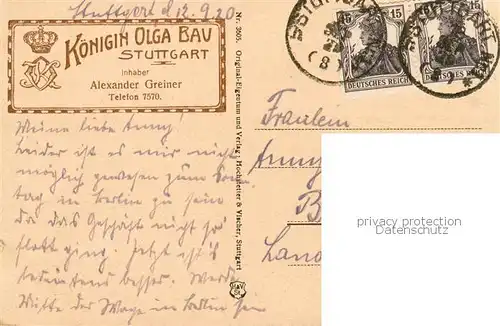 Stuttgart d. 12. 9. 20
KÖNIGIN OLGA BAU
STUTTGART
Inhaber
Alexander Greiner
Telefon 7570.
Meine liebe Anny!
Leider ist es mir nicht
möglich gewesen zum Sonn
tag in Berlin zu sein
da das Geschäft nicht so
flott ging. Jetzt ist es
bedeutens besser. Werde
Mitte der Woge in Berlin sein
Nr. 3805 Original-Eigentum und Verlag: Hochstetter & Vischer, Stuttgart
H&V
St
STUTTGART
15
15
DEUTSCHES REICH
DEUTSCHES REICH
STUTTGART
Fräulein
Anny
B
privacy protection
www.ansichtskartenversand.com